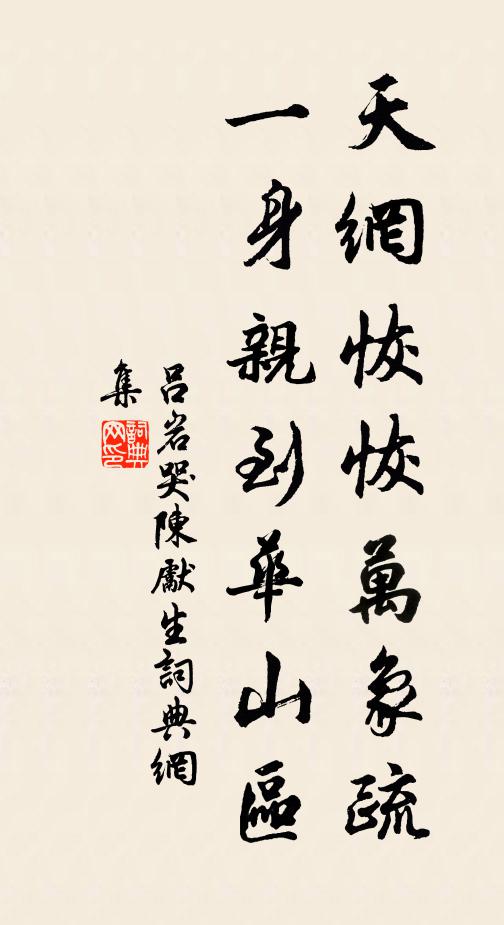 天網恢恢萬象疏
一身親到華山區
吕岩哭陳獻生詞典網
集
詞典网印